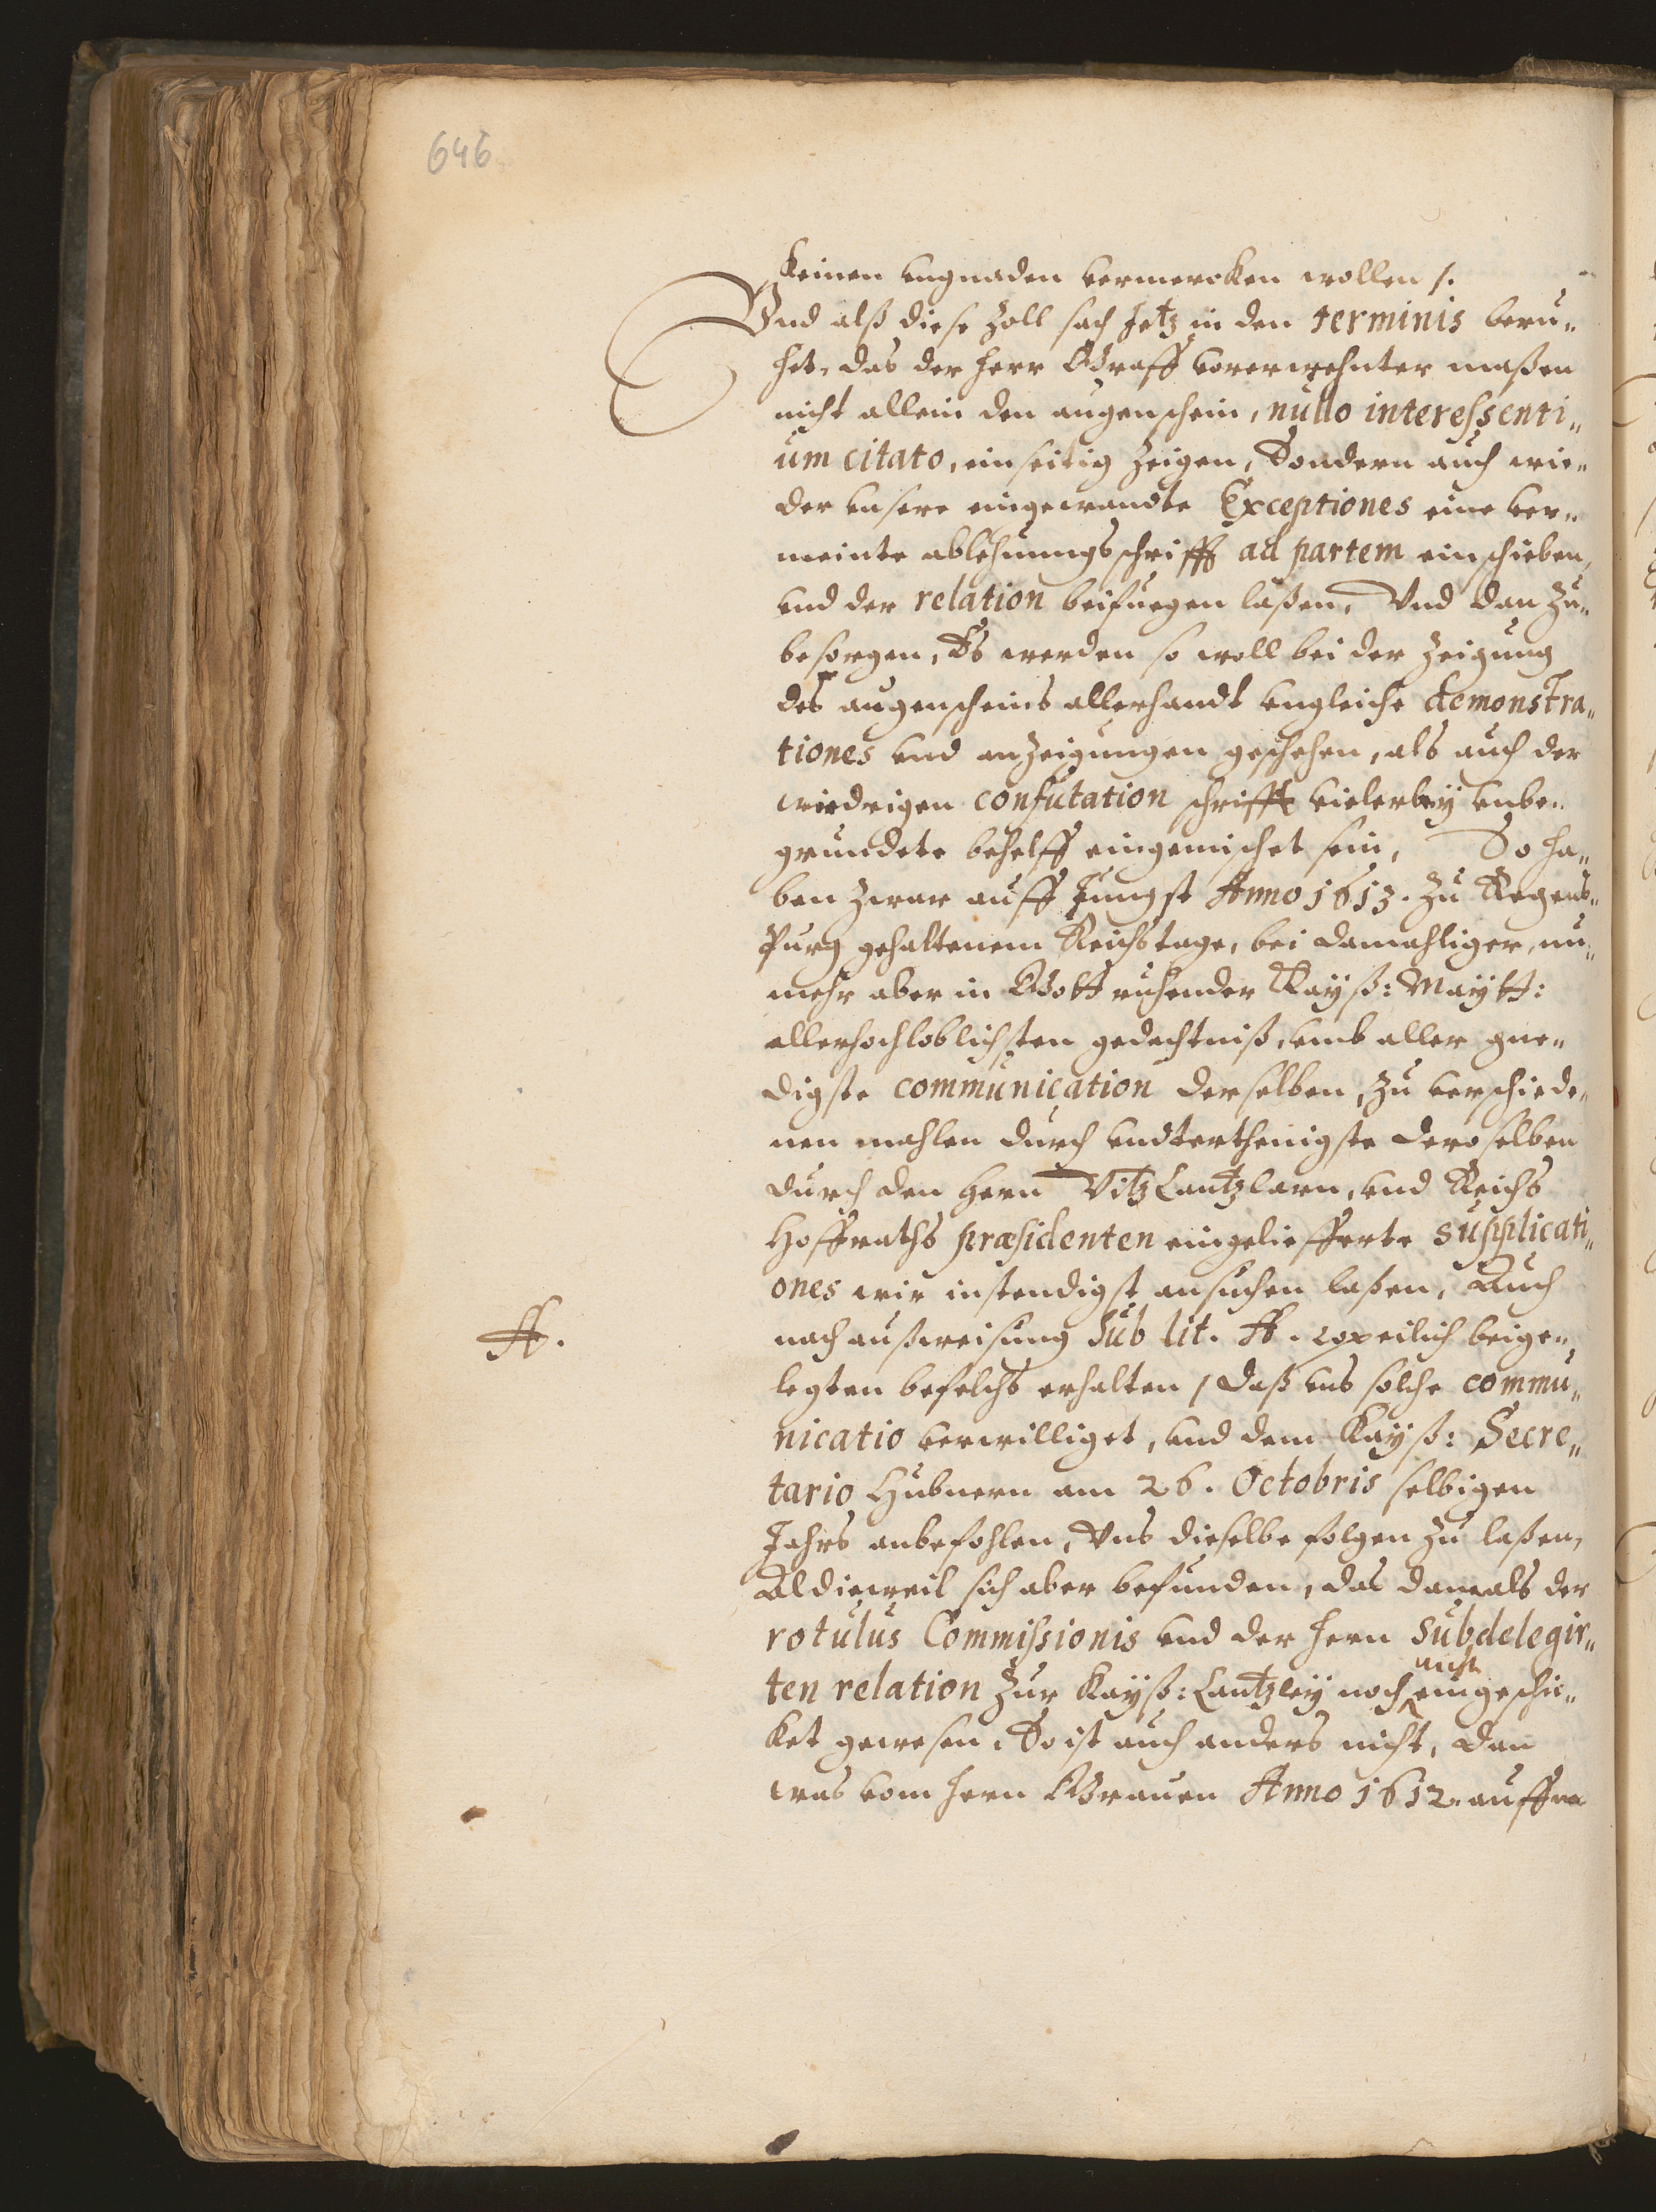 646
Keinen vngnaden vermercken wollen /.
Vnd alß diese Zoll sach Jetz in den terminis beru„
het, das der Herr Graff vorerwehnter maßen
nicht allein den augenschein, nullo interessenti„
um citato, einseitig Zeigen, Sondern auch wie„
der vnsere eingewandte Exceptiones eine ver„
meinte ablehnungsschrifft ad partem einschieben,
vnd der relation beifuegen laßen, Vnd dan Zu„
besorgen, Es werden so woll bei der Zeigung
des augenscheins allerhandt vngleiche demonstra„
tiones vnd anZeigungen geschehen, als auch der
wiedrigen confutation schrifft vielerleÿ vnbe„
grundete behelff eingemischet sein, So ha„
ben Zwar auff Jungst Anno 1613. Zu Regens„
Purg gehaltenem Reichstage, bei damahliger, nu„
mehr aber in Gott ruhender Kayß: Maytt:
allerhochloblichsten gedechtniß, vmb aller gne„
digste communication derselben, Zu verschiede„
nen mahlen durch vndterthenigste deroselben
durch den Hern VitzCantzlarn, vnd Reichs
Hoffraths præsidenten eingelieferte supplicati„
ones wir instendigst ansuchen laßen, Auch
nach außweisung Sub lit. A. copeilich beige„
legten befelchs erhalten / daß vns solche commu„
nicatio verwilliget, vnd dem Kayß: Secre„
tario Hubnern am 26. Octobris selbigen
Jahrs anbefohlen, Vns dieselbe folgen Zu laßen,
Aldieweil sich aber befunden, das damals der
rotulus Commissionis vnd der Hern Subdelegir„
nicht
ten relation Zur Kayß: Cantzleÿ noch eingeschi„
ket gewesen, So ist auch anders nicht, dan
was vom Hern Grauen Anno 1612. auffm
A.